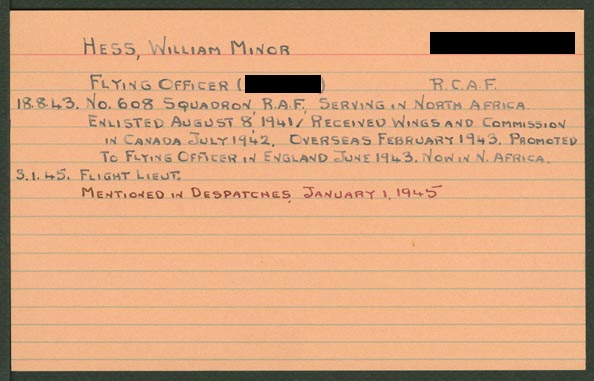 HESS, WILLIAM MINOR
FLYING OFFICER ( ) R.C.A.F.
18.8.43. NO. 608 SQUADRON, R.A.F., SERVING IN NORTH AFRICA.
ENLISTED AUGUST 8, 1941/ RECEIVED WINGS AND COMMISSION
IN CANADA JULY 1942. OVERSEAS FEBRUARY 1943. PROMOTED
TO FLYING OFFICER IN ENGLAND JUNE 1943. NOW IN N. AFRICA.
3.1.45. FLIGHT LIEUT.
MENTIONED IN DESPATCHES, JANUARY 1, 1945